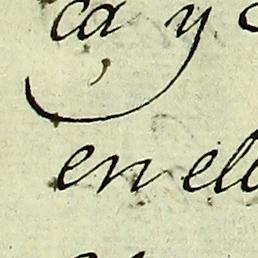 ca y
en el